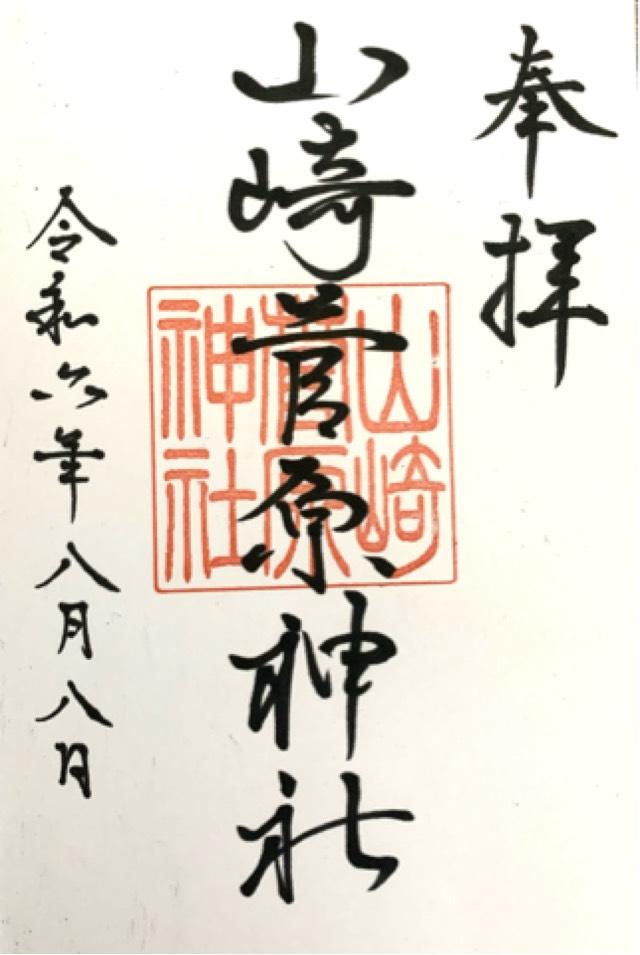 奉拝
山崎菅原神社
山崎
菅原
神社
令和六年八月八日